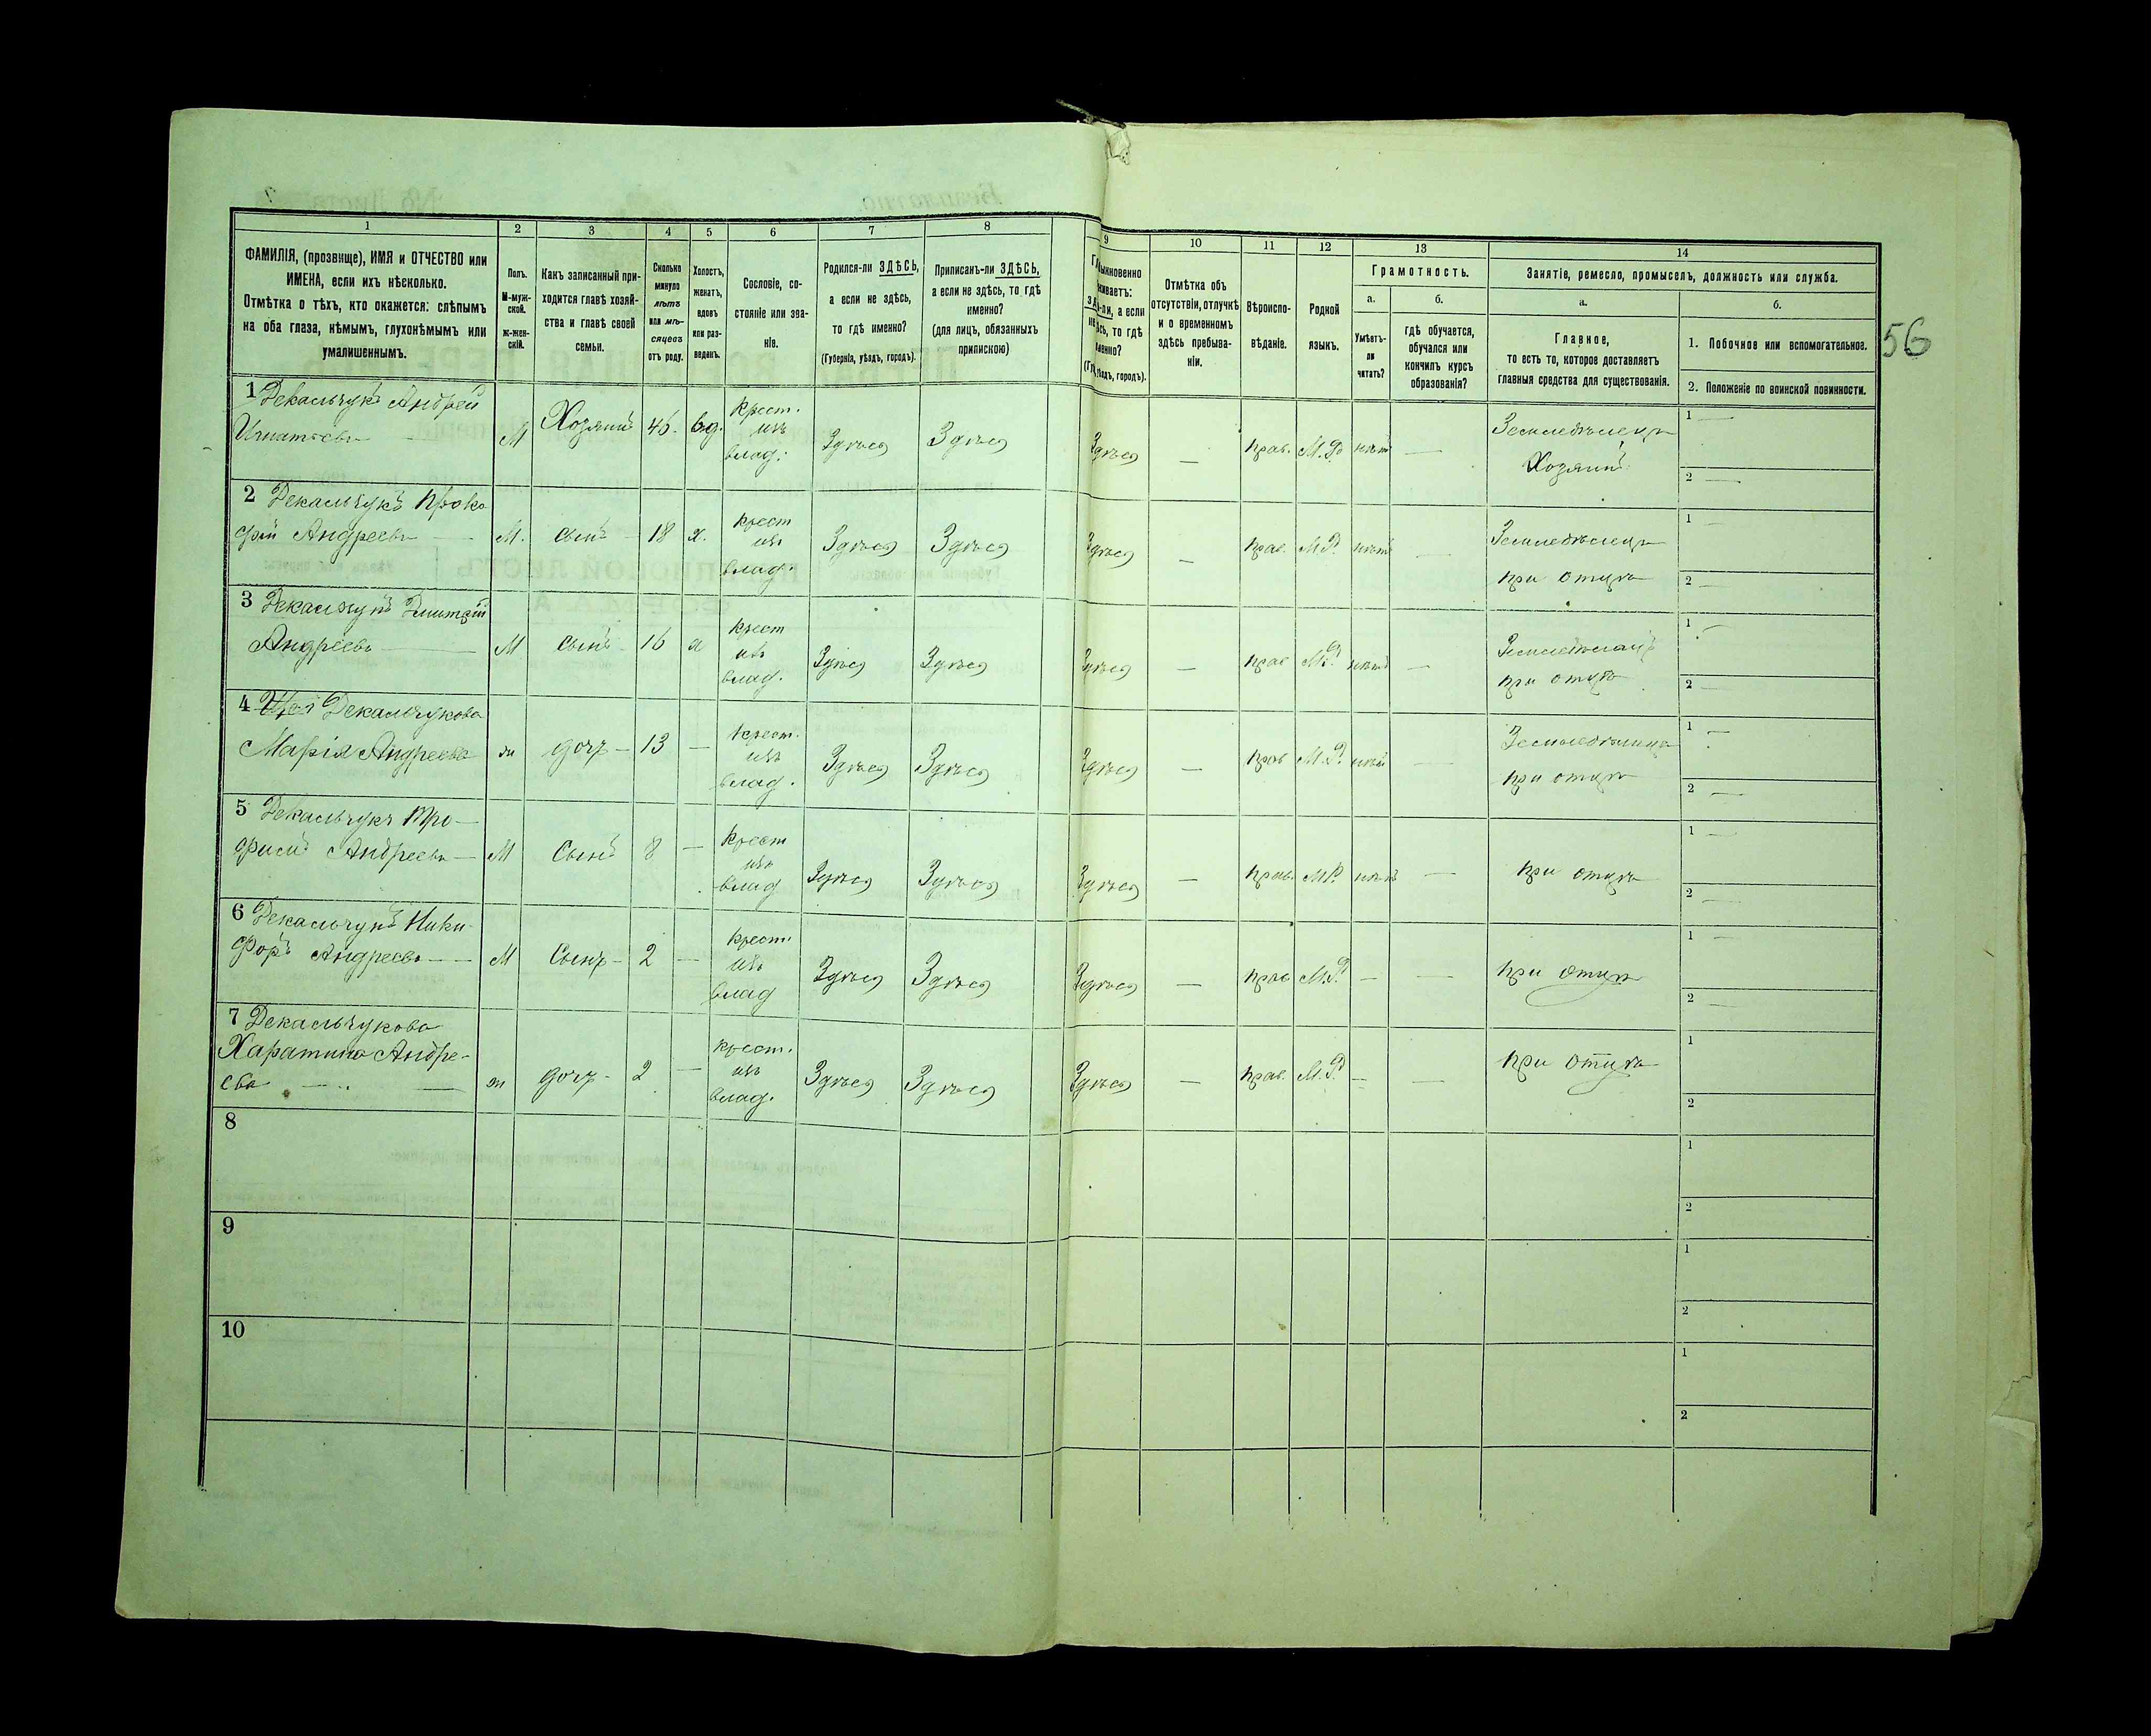 1
2
3
4
5
6
7
8
ФАМИЛІЯ, (прозвище), ИМЯ и ОТЧЕСТВО или
ИМЕНА, если ихъ нѣсколько.
Отмѣтка о тѣхъ, кто окажется: слѣпымъ
на оба глаза, нѣмымъ, глухонѣмымъ или
умалишеннымъ.
Полъ.
М-муж-
ской.
ж-жен-
скій.
Какъ записанный при-
ходится главѣ хозяй-
ства и главѣ своей
семьи.
Сколько
минуло
лѣтъ
или мѣ-
сяцевъ
отъ роду.
Холостъ,
женатъ,
вдовъ
или раз-
веденъ.
Сословіе, со-
стояніе или зва-
ніе.
Родился-ли ЗДѢСЬ,
а если не здѣсь,
то гдѣ именно?
(Губернія, уѣздъ, городъ).
Приписанъ-ли ЗДѢСЬ,
а если не здѣсь, то гдѣ
именно?
(для лицъ, обязанныхъ
припискою)
9
10
11
12
13
14
ыкновенно
живаетъ:
а если
то гдѣ
уѣздъ, городъ).
Отмѣтка объ
отсутствіи, отлучкѣ
и о временномъ
здѣсь пребыва-
ніи.
Вѣроиспо-
вѣданіе.
Родной
языкъ.
Грамотность.
а.
б.
Умѣетъ-
ли
читать?
гдѣ обучается,
обучался или
кончилъ курсъ
образованія?
Занятіе, ремесло, промыселъ, должность или служба.
а.
б.
Главное,
то есть то, которое доставляетъ
главныя средства для существованія.
1. Побочное или вспомогательное.
2. Положеніе по воинской повинности.
56
1 Декальчукъ Андрей
Игнатьевъ — М Хозяинъ 46. вд. крест. изъ влад. Здѣсь Здѣсь Здѣсь — прав. М.Р. нѣтъ — Земледѣлецъ Хозяинъ 1 — 2 —
2 Декальчукъ Проко
фій Андреевъ — М. сынъ 18 х. крест изъ влад. Здѣсь Здѣсь Здѣсь — прав. М.Р. нѣтъ — Земледѣлецъ при отцѣ 1 — 2 —
3 Декальчукъ Дмитрій
Андреевъ — М Сынъ 16 х крест изъ влад. Здѣсь Здѣсь Здѣсь — прав М.Р. нѣтъ — при отцѣ 1 — 2 —
4 Декальчукова
Марія Андреева ж дочь — 13 — крест. изъ влад. Здѣсь Здѣсь Здѣсь — прав М.Р. нѣтъ — при отцѣ 1 — 2 —
5 Декальчукъ Тро-
фимъ Андреевъ — М Сынъ 8 — крест изъ влад Здѣсь Здѣсь Здѣсь — прав. М.Р. нѣтъ — при отцѣ 1 — 2 —
6 Декальчукъ Ники-
форъ Андреевъ — М Сынъ — 2 — крест. изъ влад Здѣсь Здѣсь Здѣсь — прав М.Р. — — при отцѣ 1 — 2 —
7 Декальчукова
Харатина Андре-
ева — ж дочь — 2 — крест. изъ влад. Здѣсь Здѣсь Здѣсь — прав. М.Р. — — при отцѣ 1 2
8 1 2
9 1 2
10 1 2